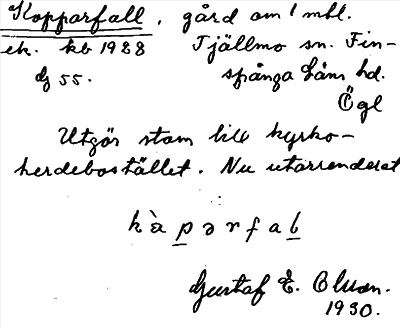 Kopparfall, gård om 1 mtl.
ek. kb 1928 Tjällmo sn. Fin-
dg 55. spånga läns hd.
Ögl
Utgör stom till kyrko-
herdebostället. Nu utarrenderat
k à p ə r f a l
Gustaf E. Olson.
1930.